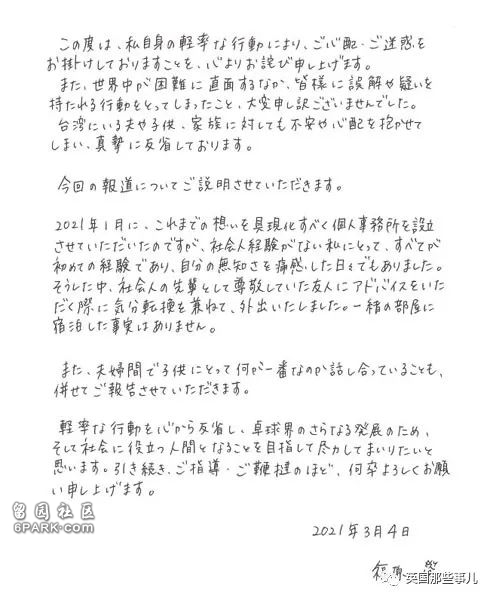 この度は、私自身の軽率な行動により、ご心配・ご迷惑を
お掛けしておりますことを、心よりお詫び申し上げます。
また、世界中が困難に直面するなか、皆様に誤解や疑いを
持たれる行動をとってしまったこと、大変申し訳ございませんでした。
台湾にいる夫や子供、家族に対しても不安や心配を抱かせて
しまい、真摯に反省しております。
今回の報道についてご説明させていただきます。
2021年1月に、これまでの想いを具現化すべく個人事務所を設立
させていただいたのですが、社会人経験がない私にとって、すべてが
初めての経験であり、自分の無知さを痛感した日々でもありました。
そうした中、社会人の先輩として尊敬していた友人にアドバイスをいた
だく際に気分転換を兼ねて、外出いたしました。一緒の部屋に
宿泊した事実はありません。
また、夫婦間で子供にとって何が一番なのか話し合っていることも、
併せてご報告させていただきます。
軽率な行動を心から反省し、卓球界のさらなる発展のため、
そして社会に役立つ人間となることを目指して尽力してまいりたいと
思います。引き続き、ご指導・ご鞭撻のほど、何卒よろしくお願
い申し上げます。
2021年3月4日
福原 愛
留园社区
6PARK.com
英国那些事儿